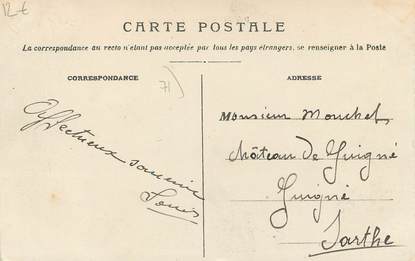 12 €
CARTE POSTALE
La correspondance au recto n'étant pas acceptée par tous les pays étrangers, se renseigner à la Poste
CORRESPONDANCE
71
ADRESSE
Affectueux souvenir
Louis
Monsieur Mouchet
château de Guigné
Guigné
Sarthe